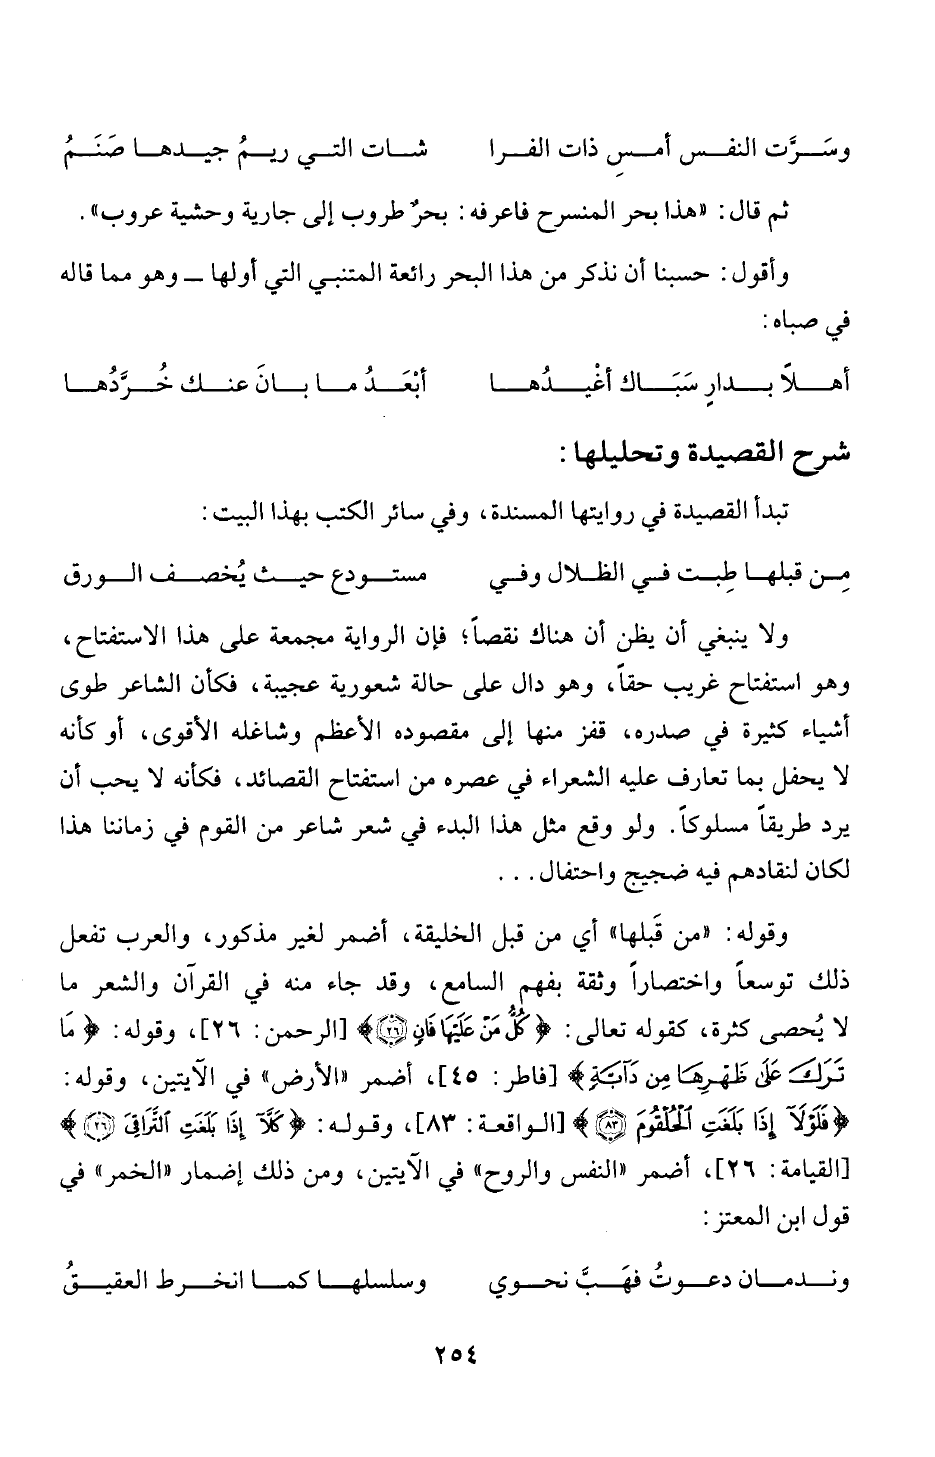 وسَرَّت النفس أمسِ ذات الفرا شات التي ريمُ جيدها صَنَمُ
ثم قال: «هذا بحر المنسرح فاعرفه: بحرٌ طروب إلى جارية وحشية عروب».
وأقول: حسبنا أن نذكر من هذا البحر رائعة المتنبي التي أولها ـ وهو مما قاله
في صباه:
أهلاً بدارٍ سَبَاك أغْيدُها أبْعَدُ ما بانَ عنك خُرَّدُها
شرح القصيدة وتحليلها:
تبدأ القصيدة في روايتها المسندة، وفي سائر الكتب بهذا البيت:
مِن قبلها طِبت في الظلال وفي مستودع حيث يُخصف الورق
ولا ينبغي أن يظن أن هناك نقصاً؛ فإن الرواية مجمعة على هذا الاستفتاح،
وهو استفتاح غريب حقاً، وهو دال على حالة شعورية عجيبة، فكأن الشاعر طوى
أشياء كثيرة في صدره، قفز منها إلى مقصوده الأعظم وشاغله الأقوى، أو كأنه
لا يحفل بما تعارف عليه الشعراء في عصره من استفتاح القصائد، فكأنه لا يحب أن
يرد طريقاً مسلوكاً. ولو وقع مثل هذا البدء في شعر شاعر من القوم في زماننا هذا
لكان لنقادهم فيه ضجيج واحتفال...
وقوله: «من قَبلها» أي من قبل الخليقة، أضمر لغير مذكور، والعرب تفعل
ذلك توسعاً واختصاراً وثقة بفهم السامع، وقد جاء منه في القرآن والشعر ما
لا يُحصى كثرة، كقوله تعالى: ﴿كُلُّ مَنْ عَلَيْهَا فَانٍ ٢٦﴾ [الرحمن: ٢٦]، وقوله: ﴿مَا
تَرَكَ عَلَىٰ ظَهْرِهَا مِن دَآبَّةٍ﴾ [فاطر: ٤٥]، أضمر «الأرض» في الآيتين، وقوله:
﴿فَلَوْلَآ إِذَا بَلَغَتِ الْحُلْقُومَ ٨٣﴾ [الواقعة: ٨٣]، وقوله: ﴿كَلَّآ إِذَا بَلَغَتِ التَّرَاقِيَ ٢٦﴾
[القيامة: ٢٦]، أضمر «النفس والروح» في الآيتين، ومن ذلك إضمار «الخمر» في
قول ابن المعتز:
وندمان دعوتُ فهَبَّ نحوي وسلسلها كما انخرط العقيقُ
٢٥٤